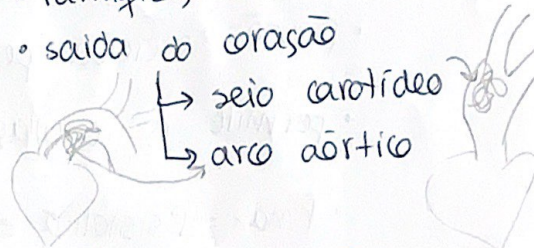 • saída do coração
↳ seio carotídeo
↳ arco aórtico